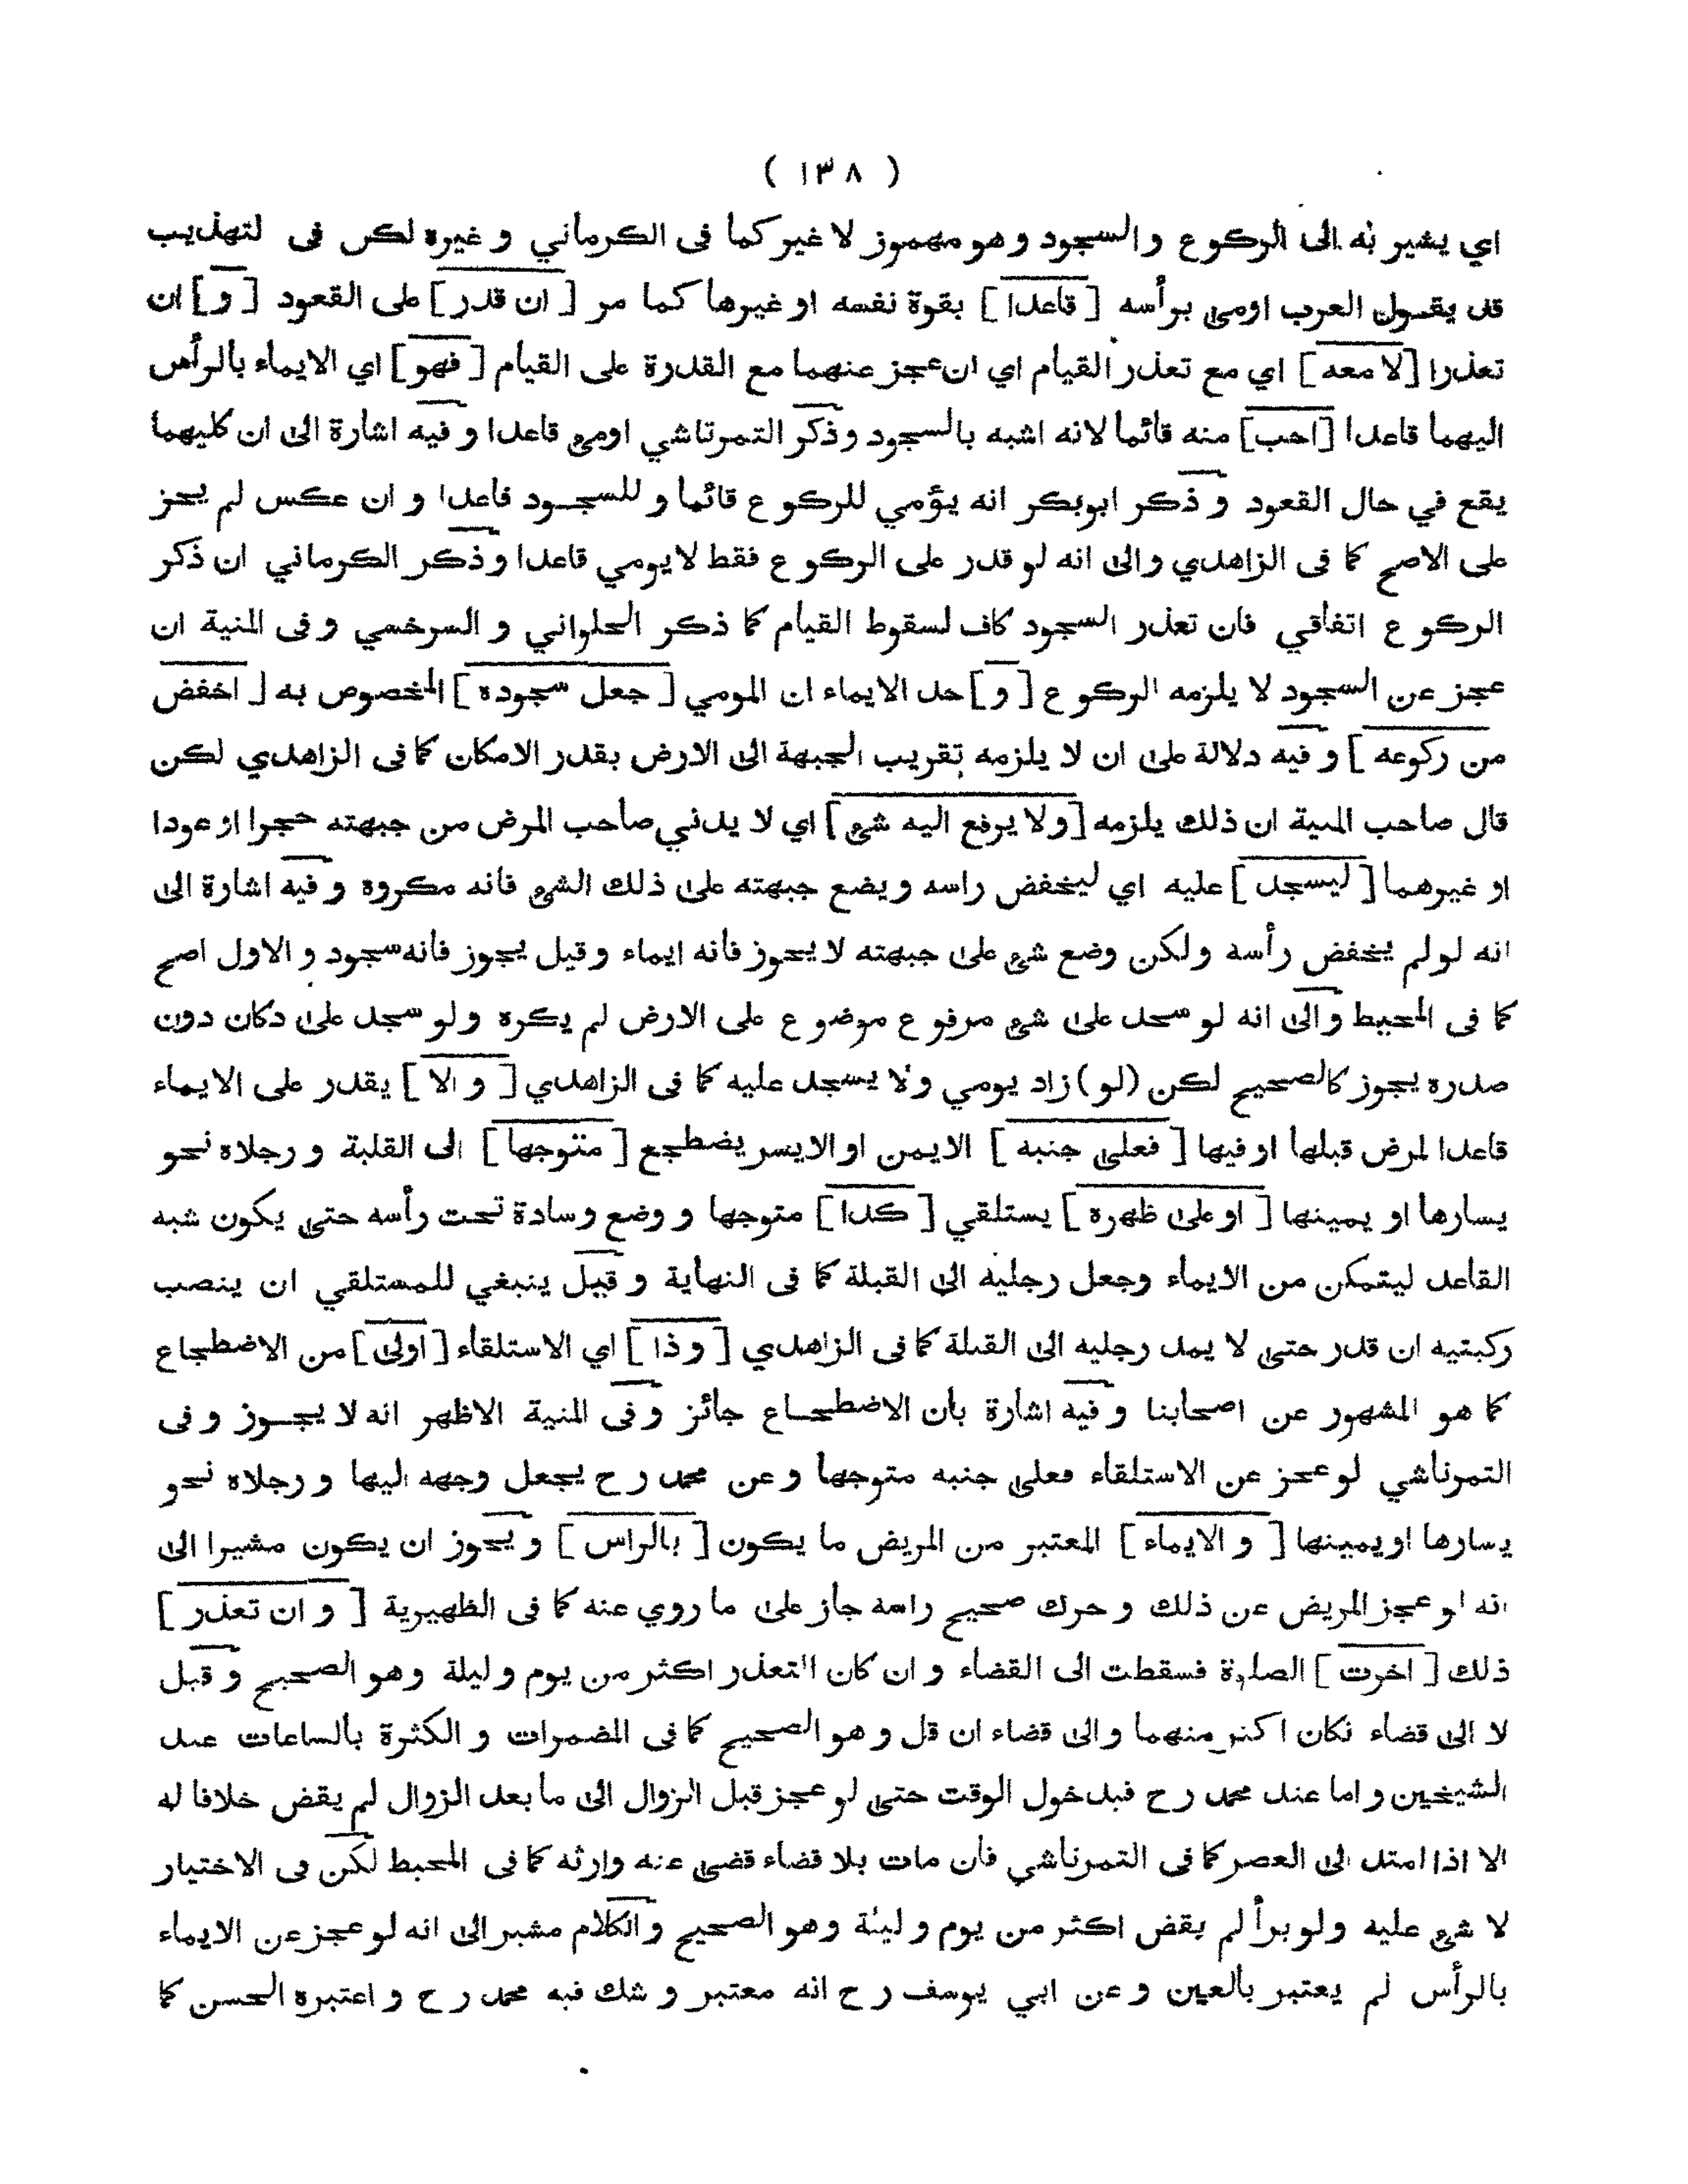 ( ١٣٨ )
اي يشير به الى الركوع والسجود وهو مهموز لا غير كما فى الكرماني و غيره لكن فى لتهذيب
قد يقول العرب اومى برأسه [ قاعدا ] بقوة نفسه او غيرها كما مر [ ان قدر ] على القعود [ و ] ان
تعذرا [ لا معه ] اي مع تعذر القيام اي ان عجز عنهما مع القدرة على القيام [ فهو ] اي الايماء بالرأس
اليهما قاعدا [ احب ] منه قائما لانه اشبه بالسجود وذكر التمرتاشي اومئ قاعدا و فيه اشارة الى ان كليهما
يقع في حال القعود و ذكر ابوبكر انه يؤمي للركوع قائما و للسجود قاعدا و ان عكس لم يجز
على الاصح كما فى الزاهدي والى انه لو قدر على الركوع فقط لا يومي قاعدا وذكر الكرماني ان ذكر
الركوع اتفاقي فان تعذر السجود كاف لسقوط القيام كما ذكر الحلواني و السرخسي و فى المنية ان
عجز عن السجود لا يلزمه الركوع [ و ] حد الايماء ان المومي [ جعل سجوده ] المخصوص به [ اخفض
من ركوعه ] و فيه دلالة على ان لا يلزمه تقريب الجبهة الى الارض بقدر الامكان كما فى الزاهدي لكن
قال صاحب المنية ان ذلك يلزمه [ ولا يرفع اليه شئ ] اي لا يدني صاحب المرض من جبهته حجرا او عودا
او غيرهما [ ليسجد ] عليه اي ليخفض راسه ويضع جبهته على ذلك الشئ فانه مكروه و فيه اشارة الى
انه لو لم يخفض رأسه ولكن وضع شئ على جبهته لا يجوز فانه ايماء وقيل يجوز فانه سجود و الاول اصح
كما فى المحيط والى انه لو سجد على شئ مرفوع موضوع على الارض لم يكره ولو سجد على دكان دون
صدره يجوز كالصحيح لكن (لو) زاد يومي ولا يسجد عليه كما فى الزاهدي [ و الا ] يقدر على الايماء
قاعدا لمرض قبلها او فيها [ فعلى جنبه ] الايمن او الايسر يضطجع [ متوجها ] الى القلبة و رجلاه نحو
يسارها او يمينها [ او على ظهره ] يستلقي [ كذا ] متوجها و وضع وسادة تحت رأسه حتى يكون شبه
القاعد ليتمكن من الايماء وجعل رجليه الى القبلة كما فى النهاية و قيل ينبغي للمستلقي ان ينصب
ركبتيه ان قدر حتى لا يمد رجليه الى القبلة كما فى الزاهدي [ و ذا ] اي الاستلقاء [ اولى ] من الاضطجاع
كما هو المشهور عن اصحابنا و فيه اشارة بان الاضطجاع جائز و فى المنية الاظهر انه لا يجوز و فى
التمرتاشي لو عجز عن الاستلقاء فعلى جنبه متوجها وعن محمد رح يجعل وجهه اليها و رجلاه نحو
يسارها او يمينها [ و الايماء ] المعتبر من المريض ما يكون [ بالراس ] و يجوز ان يكون مشيرا الى
انه لو عجز المريض عن ذلك و حرك صحيح راسه جاز على ما روي عنه كما فى الظهيرية [ و ان تعذر ]
ذلك [ اخرت ] الصلوة فسقطت الى القضاء و ان كان التعذر اكثر من يوم و ليلة وهو الصحيح و قيل
لا الى قضاء فكان اكثر منهما والى قضاء ان قل و هو الصحيح كما فى المضمرات و الكثرة بالساعات عند
الشيخين و اما عند محمد رح فبدخول الوقت حتى لو عجز قبل الزوال الى ما بعد الزوال لم يقض خلافا له
الا اذا امتد الى العصر كما فى التمرتاشي فان مات بلا قضاء قضى عنه وارثه كما فى المحيط لكن فى الاختيار
لا شئ عليه ولو برأ لم يقض اكثر من يوم و ليلة وهو الصحيح و الكلام مشير الى انه لو عجز عن الايماء
بالرأس لم يعتبر بالعين و عن ابي يوسف رح انه معتبر و شك فيه محمد رح و اعتبره الحسن كما